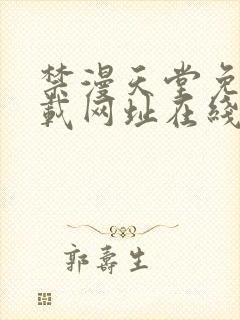 禁漫天堂免
载网址在线
郭寿生